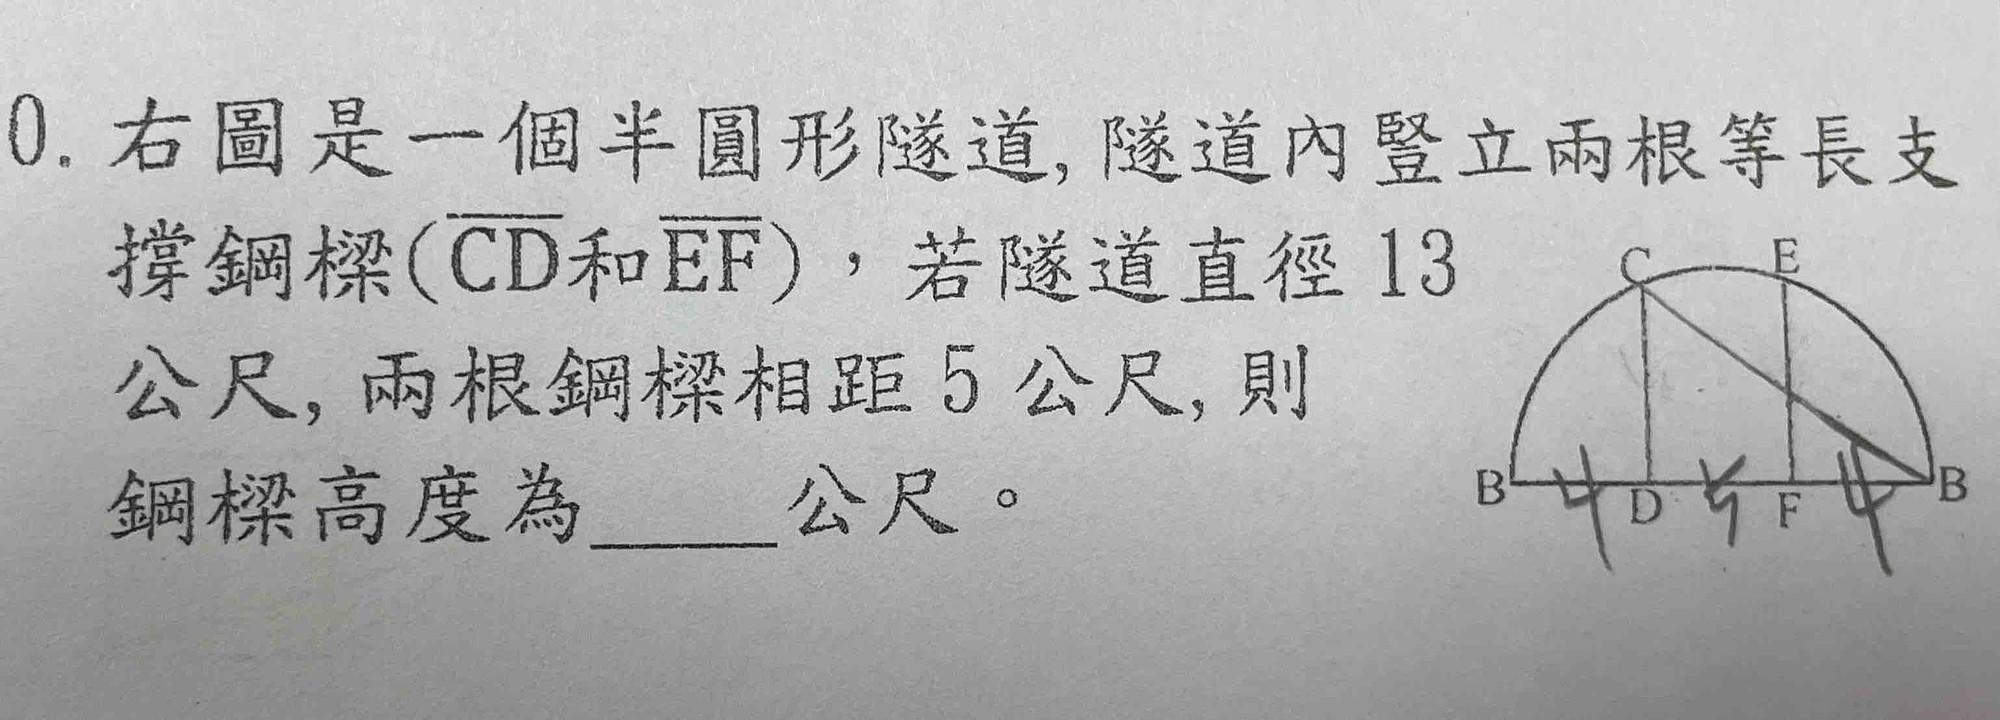 0. 右圖是一個半圓形隧道, 隧道內豎立兩根等長支
撐鋼樑(CD和EF),若隧道直徑 13
公尺, 兩根鋼樑相距 5 公尺, 則
鋼樑高度為____公尺。
C E
B D F B
4 5 4